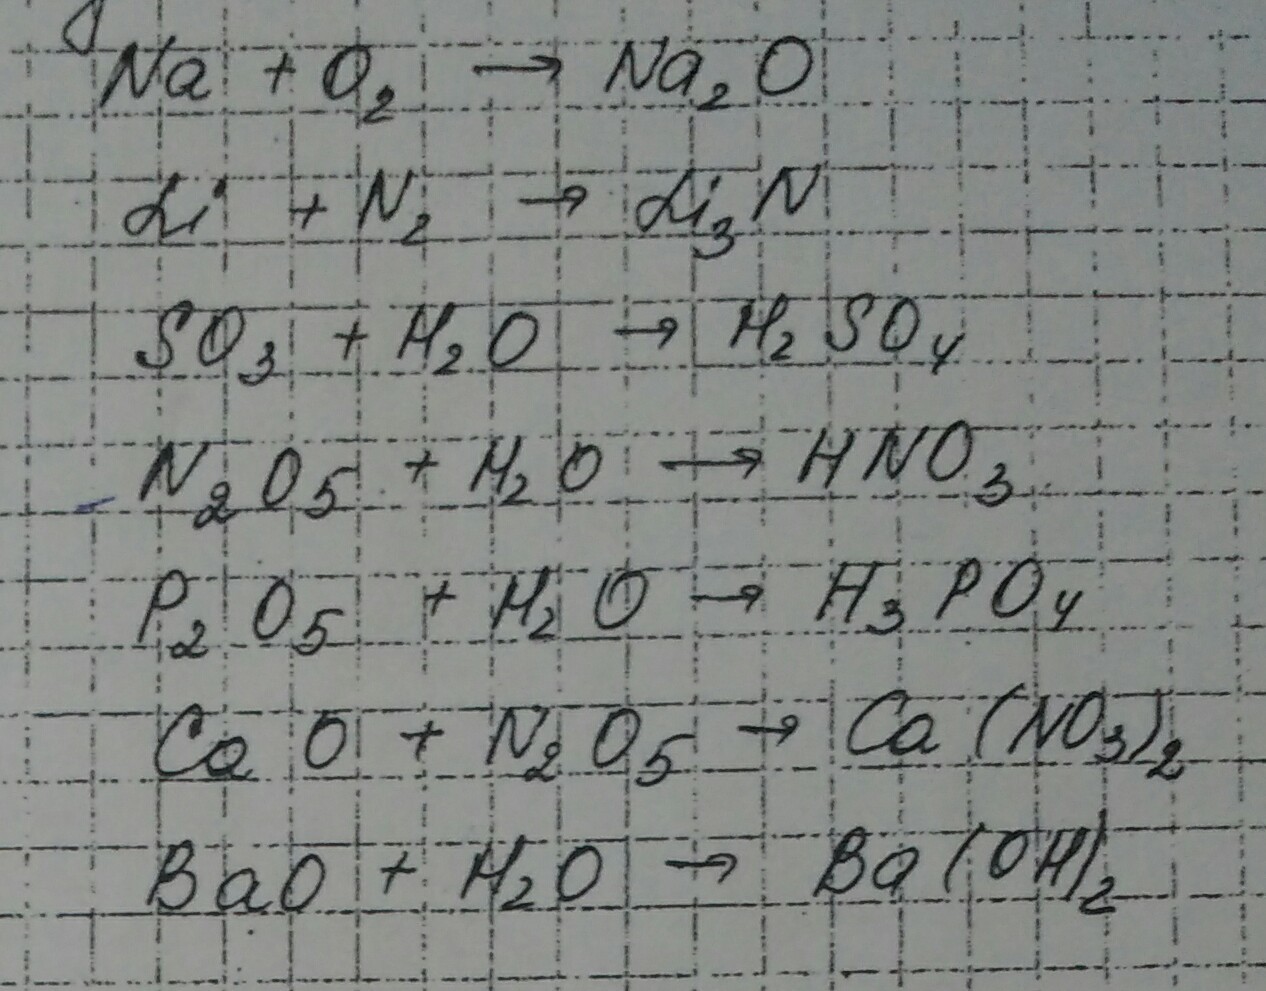 Na + O₂ → Na₂O
Li + N₂ → Li₃N
SO₃ + H₂O → H₂SO₄
N₂O₅ + H₂O → HNO₃
P₂O₅ + H₂O → H₃PO₄
CaO + N₂O₅ → Ca(NO₃)₂
BaO + H₂O → Ba(OH)₂